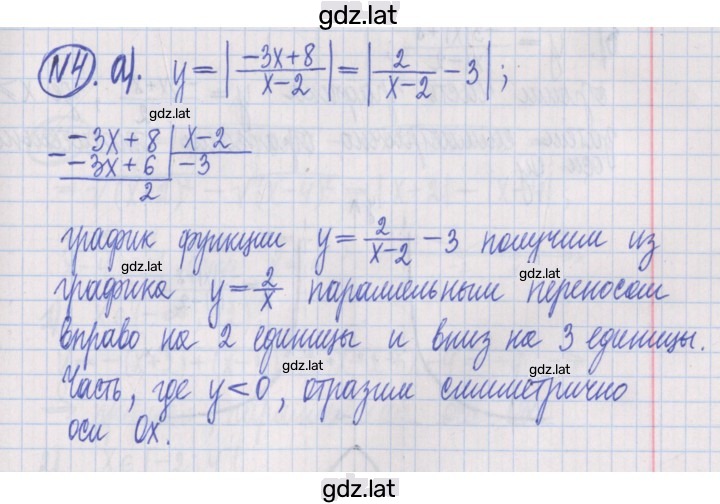 gdz.lat
№4. а). y = |(-3x+8)/(x-2)| = |2/(x-2) - 3|;
gdz.lat
- -3x + 8 | x-2
-3x + 6 | -3
gdz.lat
2
график функции y = 2/(x-2) - 3 получим из
gdz.lat
gdz.lat
графика y = 2/x параллельным переносом
gdz.lat
вправо на 2 единицы и вниз на 3 единицы.
gdz.lat
gdz.lat
Часть, где y < 0, отразим симметрично
оси Ox.
gdz.lat
gdz.lat
gdz.lat